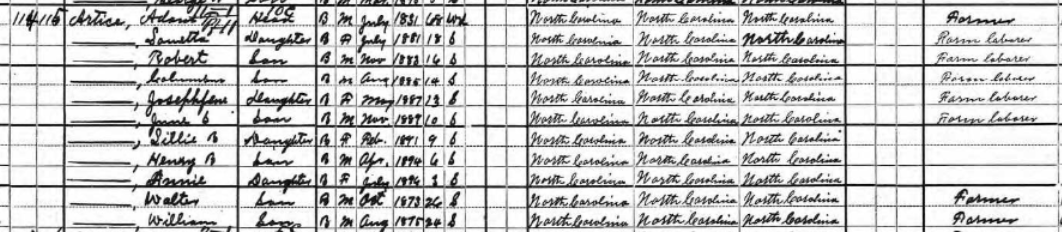 114 115 Artice, Adam Head B M July 1831 68 Wd North Carolina North Carolina North Carolina Farmer
Daughter B F July 1881 18 S North Carolina North Carolina North Carolina Farm laborer
Robert Son B M Nov 1883 16 S North Carolina North Carolina North Carolina Farm laborer
Columbus Son B M Aug 1885 14 S North Carolina North Carolina North Carolina Farm laborer
Josephfene Daughter B F May 1887 13 S North Carolina North Carolina North Carolina Farm laborer
June Son B M Nov 1889 10 S North Carolina North Carolina North Carolina Farm laborer
Lillie B Daughter B F Feb. 1891 9 S North Carolina North Carolina North Carolina
Henry B Son B M Apr. 1894 6 S North Carolina North Carolina North Carolina
Annie Daughter B F July 1896 3 S North Carolina North Carolina North Carolina
Walter Son B M Oct 1873 26 S North Carolina North Carolina North Carolina Farmer
William Son B M Aug 1875 24 S North Carolina North Carolina North Carolina Farmer